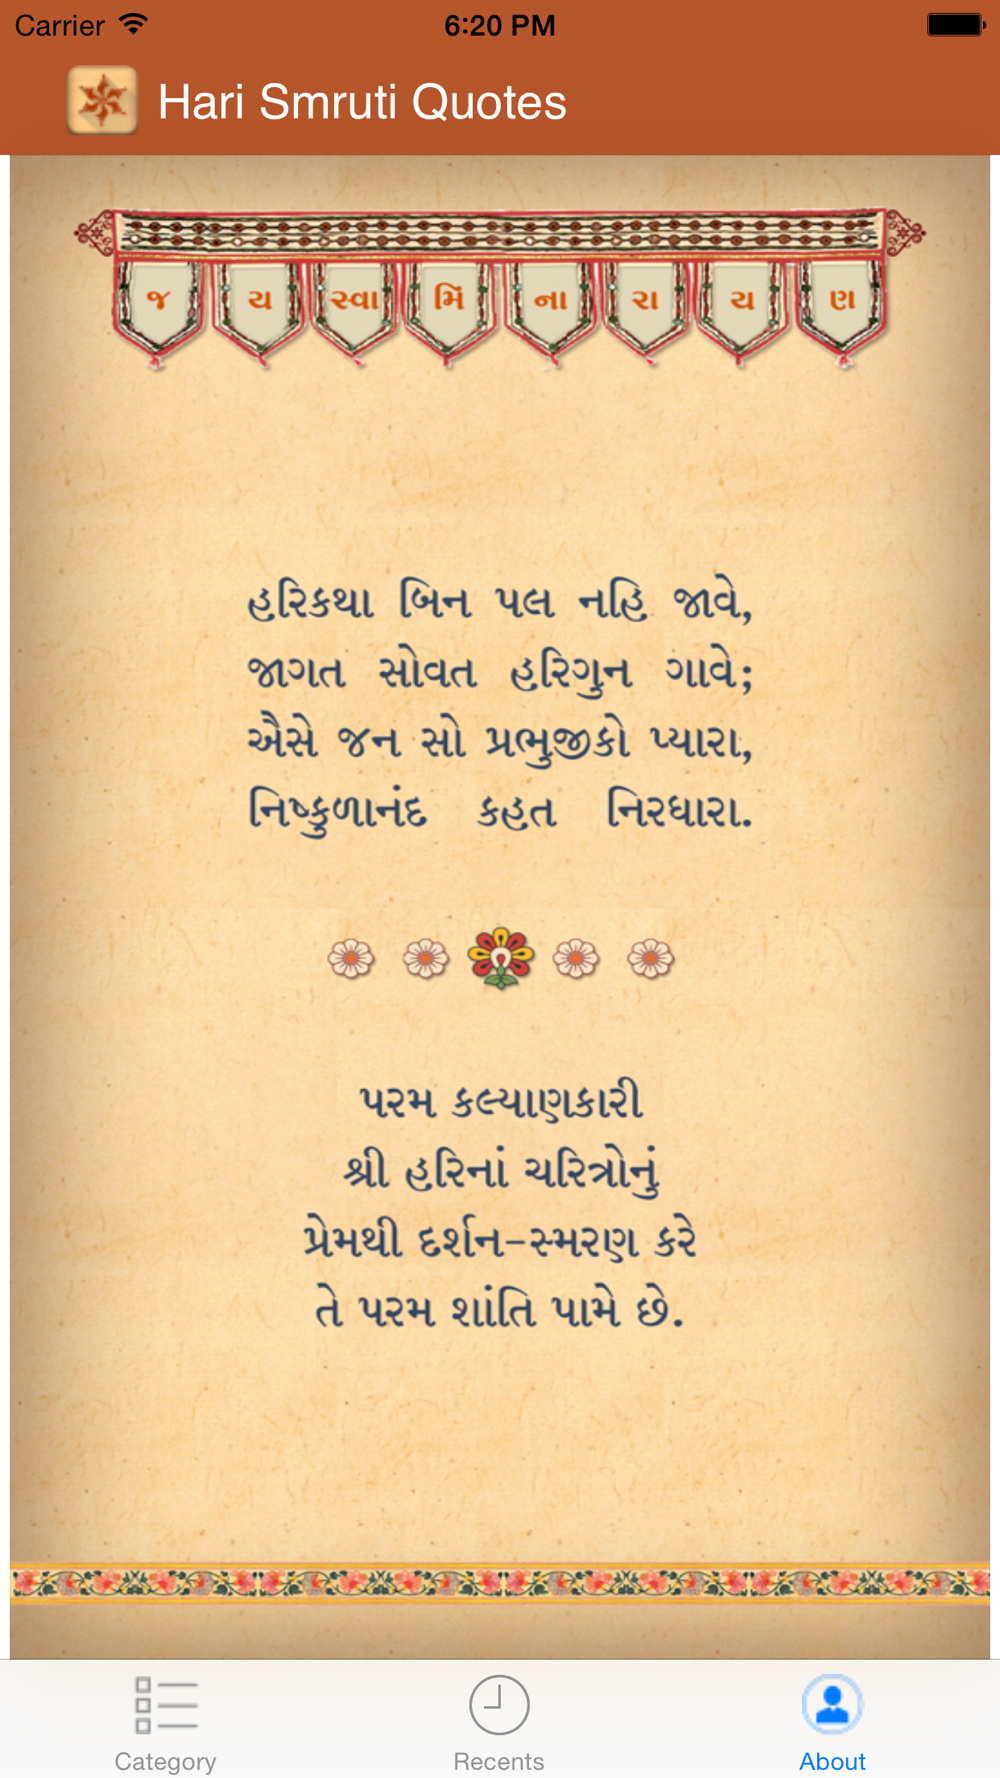 Carrier 6:20 PM
Hari Smruti Quotes
જ ય સ્વા મિ ના રા ય ણ
હરિકથા બિન પલ નહિ જાવે,
જાગત સોવત હરિગુન ગાવે;
ઐસે જન સો પ્રભુજીકો પ્યારા,
નિષ્કુળાનંદ કહત નિરધારા.
પરમ કલ્યાણકારી
શ્રી હરિનાં ચરિત્રોનું
પ્રેમથી દર્શન-સ્મરણ કરે
તે પરમ શાંતિ પામે છે.
Category Recents About